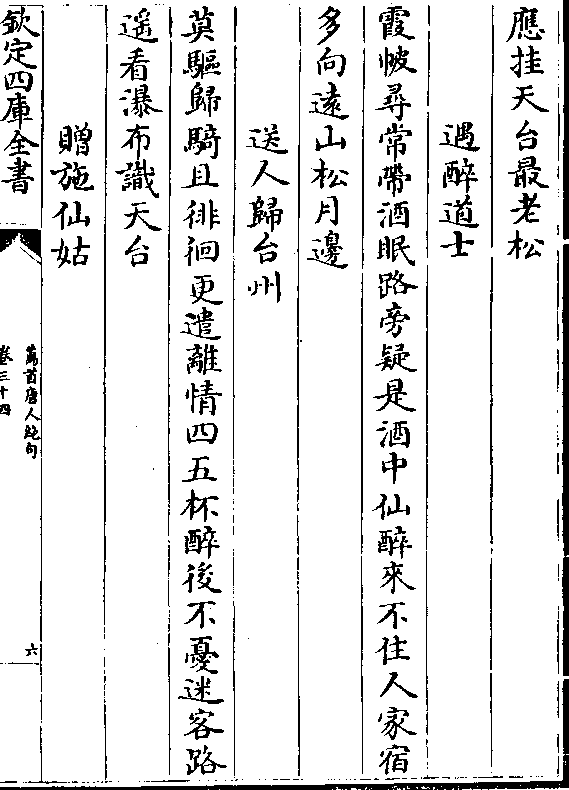 應挂天台最老松
遇醉道士
霞帔尋常帶酒眠路旁疑是酒中仙醉來不住人家宿
多向遠山松月邊
送人歸台州
莫驅歸騎且徘徊更遣離情四五杯醉後不憂迷客路
遥看瀑布識天台
贈施仙姑
欽定四庫全書
萬首唐人絶句
卷三十四
六